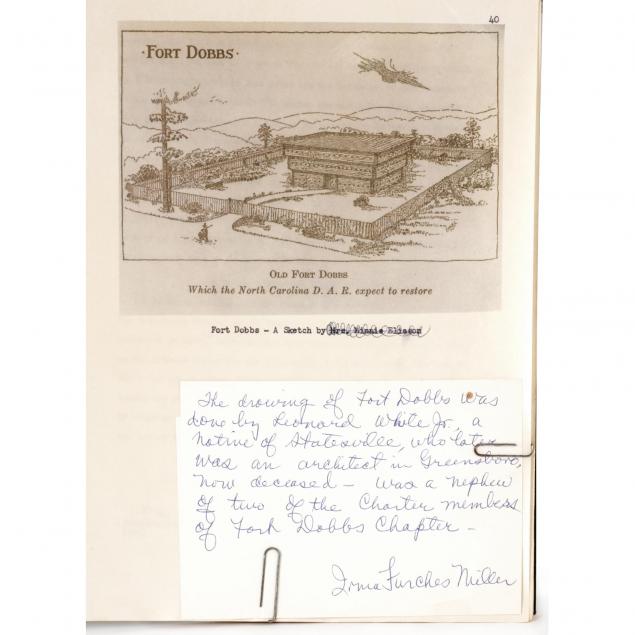 40
·FORT DOBBS·
OLD FORT DOBBS
Which the North Carolina D. A. R. expect to restore
Fort Dobbs - A Sketch by Mrs. Minnie Eliason
The drowing of Fort Dobbs was
done by Leonard White Jr., a
native of Statesville, who later
was an architect in Greensboro,
now deceased - was a nephew
of two of the Charter members
of Fort Dobbs Chapter -
Irma Furches Miller